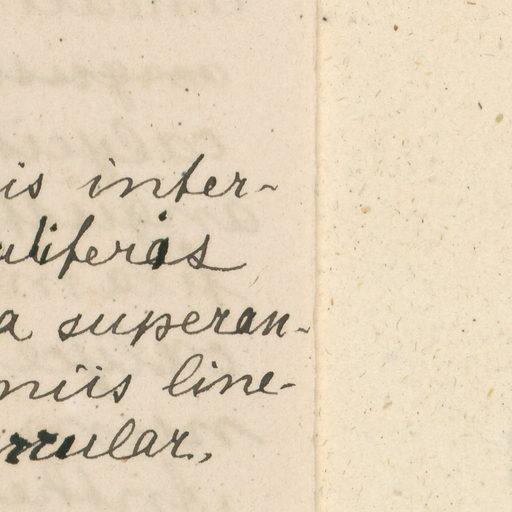 is inter-
uliferas
a superan-
niis line-
rcular.